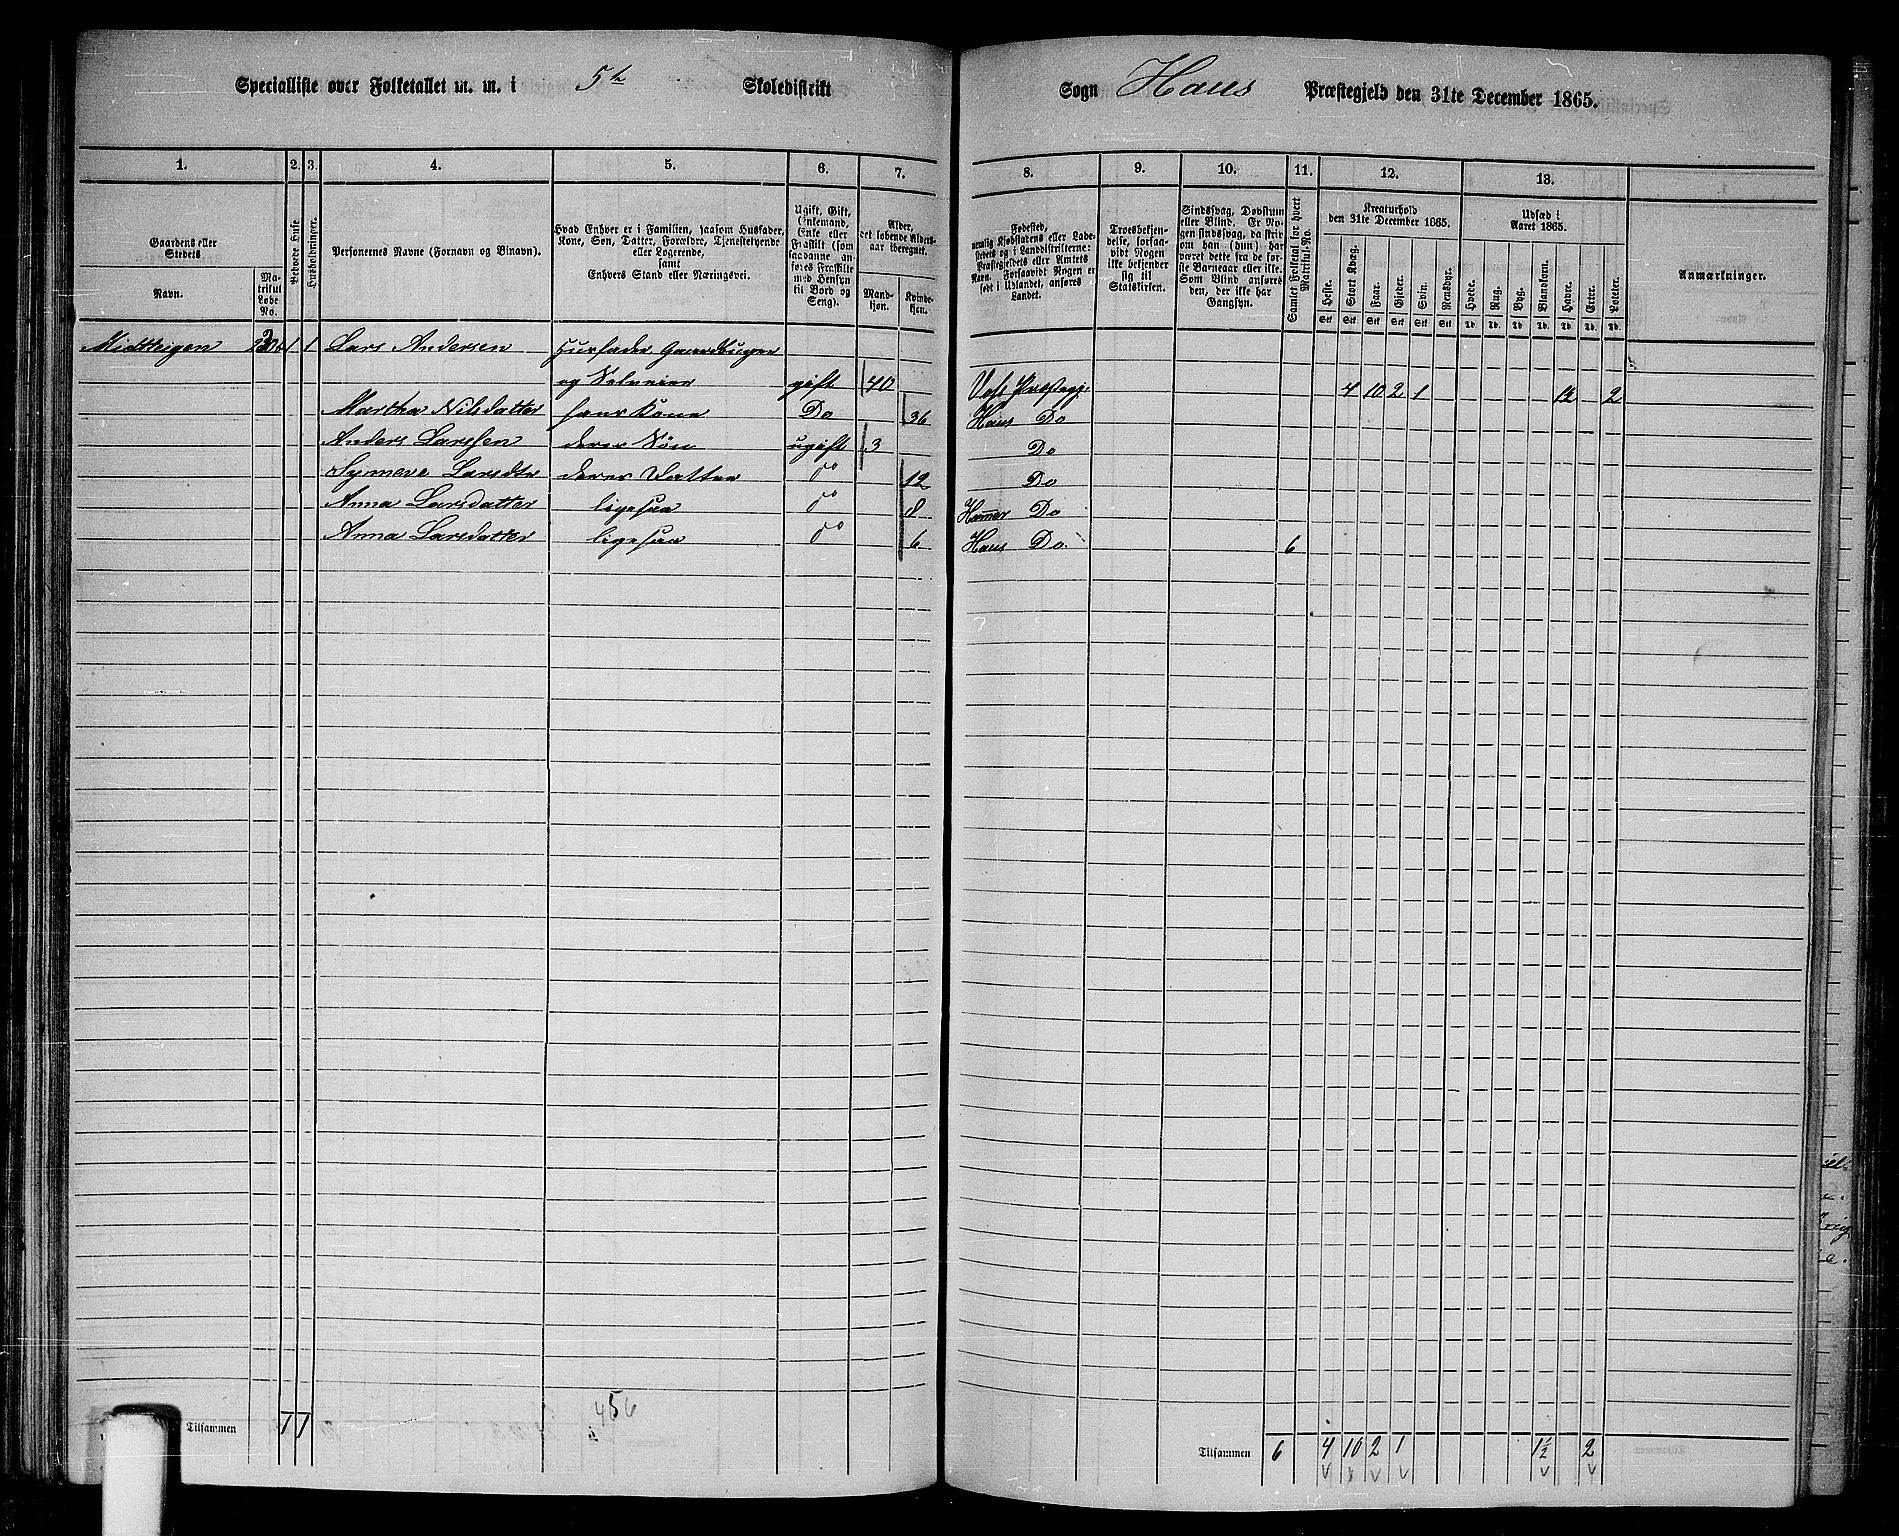 Specialliste over Folketallet m. m. i 5te Skoledistrikt
Sogn Haus Præstegjeld den 31te December 1865.
1. 2. 3. 4. 5. 6. 7.
8. 9. 10. 11. 12. 13.
Gaardens eller Stedets
Navn.
Matrikul Løbe-No.
Beboede Huse
Husholdninger.
Personernes Navne (Fornavn og Binavn).
Hvad Enhver er i Familien, saasom Husfader, Kone, Søn, Datter, Forældre, Tjenestetyende eller Logerende, samt Enhvers Stand eller Næringsvei.
Ugift, Gift, Enkemand, Enke eller Fraskilt (som saadanne anføres Fraskilte med Hensyn til Bord og Seng).
Alder, det løbende Alders-aar iberegnet.
Mandkjøn.
Kvindekjøn.
Fødested, nemlig Kjøbstadens eller Ladestedets og i Landdistrikterne: Præstegjeldets eller Amtets Navn. Forsaavidt Nogen er født i Udlandet, anføres Landet.
Troesbekjendelse, forsaavidt Nogen ikke bekjender sig til Statskirken.
Sindssvag, Døvstum eller Blind. Er Nogen sindssvag, da skrives om han (hun) har været dette fra de første Barneaar eller ikke. Som Blind anføres den, der ikke har Gangsyn.
Samlet Folketal for hvert Matrikul-No.
Kreaturhold den 31te December 1865.
Heste. Stort Kvæg. Faar. Gjeder. Svin. Rensdyr.
Udsæd i Aaret 1865.
Hvede. Rug. Byg. Blandkorn. Havre. Erter. Poteter.
Anmærkninger.
1 1 Lars Andersen Husfader, Gaardbruger
og Selveier gift 40 Præstegj. 4 10 2 1 2
Martha Nilsdatter hans Kone Do 36 Haus Do
Anders Larssen deres Søn ugift 3 Do
Larsdtr deres Datter do 12 Do
Anna Larsdatter ligesaa do 8 Hammer Do
Anna Larsdatter ligesaa do 6 Haus Do. 6
456
Tilsammen 1 1
Tilsammen 6 4 10 2 1 1½ 2